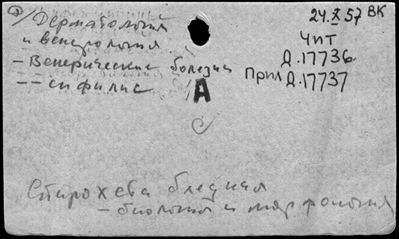 Дерматология
и венерология
- Венерические болезни
-- сифилис
24.X.57 ВК
Чит
Д.17736
Прил Д.17737
А
Спирохета бледная
- биология и морфология